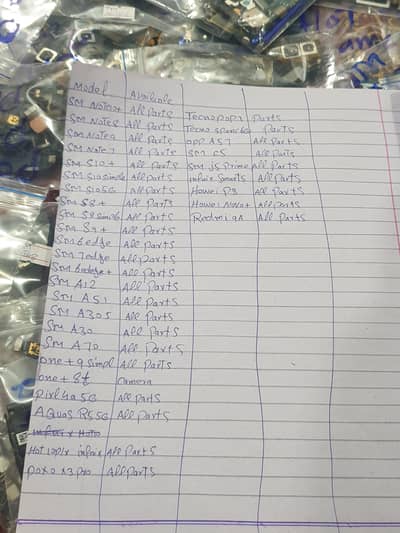 Model Available
SM Note10+ All Parts
SM Note8 All Parts Tecno pop7 Parts
SM Note9 All Parts Tecno spark6 Parts
SM Note7 All Parts opp A57 All Parts
SM S10+ All Parts SM C5 All Parts
SM S10 simple All Parts SM J5 Prime All Parts
SM S10 5G All Parts infinix Smart5 All Parts
SM S8+ All Parts Hawei P8 All Parts
SM S8 simple All Parts Hawei Nova+ All Parts
SM S9+ All Parts Redmi 9A All Parts
SM 6edge All Parts
SM 7edge All Parts
SM 6edge+ All Parts
SM A12 All Parts
SM A51 All Parts
SM A30S All Parts
SM A30 All Parts
SM A70 All Parts
one+9 simpl All Parts
one+8t Camera
Pixl 4a 5G All Parts
AQuos R5 5G All Parts
Hot 10plx infinix All Parts
poxo x3 pro All Parts